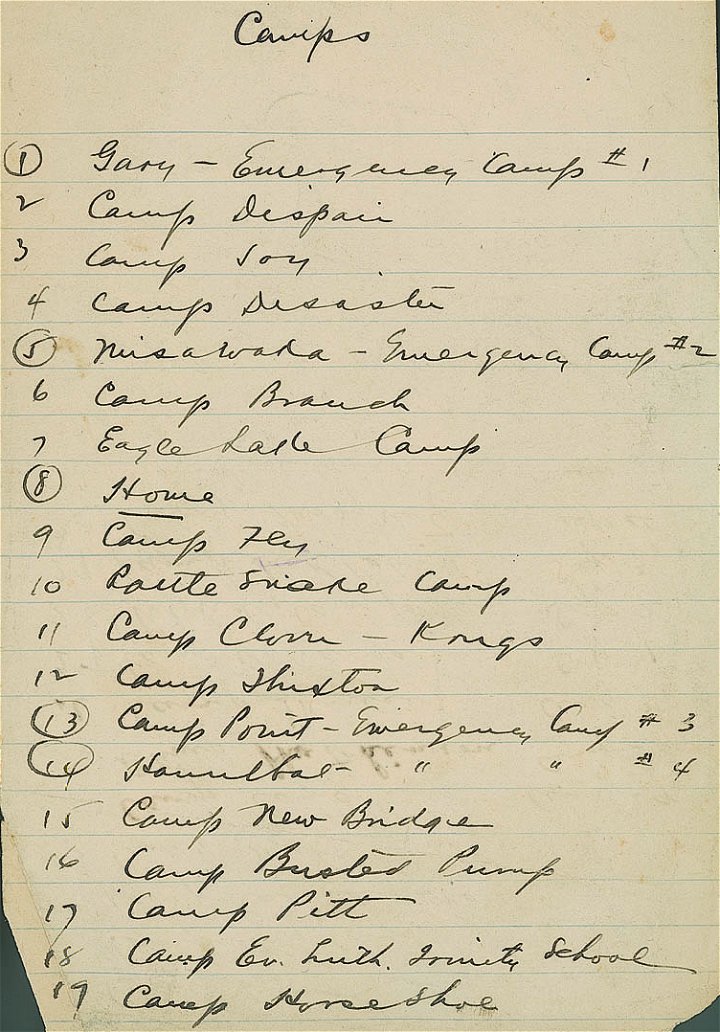 Camps
1 Gary - Emergency Camp # 1
2 Camp Dispair
3 Camp Joy
4 Camp Disaster
5 Misawaka - Emergency Camp #2
6 Camp Branch
7 Eagle Lake Camp
8 Home
9 Camp Fly
10 Rattle Snake Camp
11 Camp -
12 Camp Thixton
13 Camp Point - Emergency Camp # 3
14 Hannibal - " " # 4
15 Camp New Bridge
16 Camp Busted Pump
17 Camp Pitt
18 Camp Ev. Luth. Trinity School
19 Camp Horse Shoe